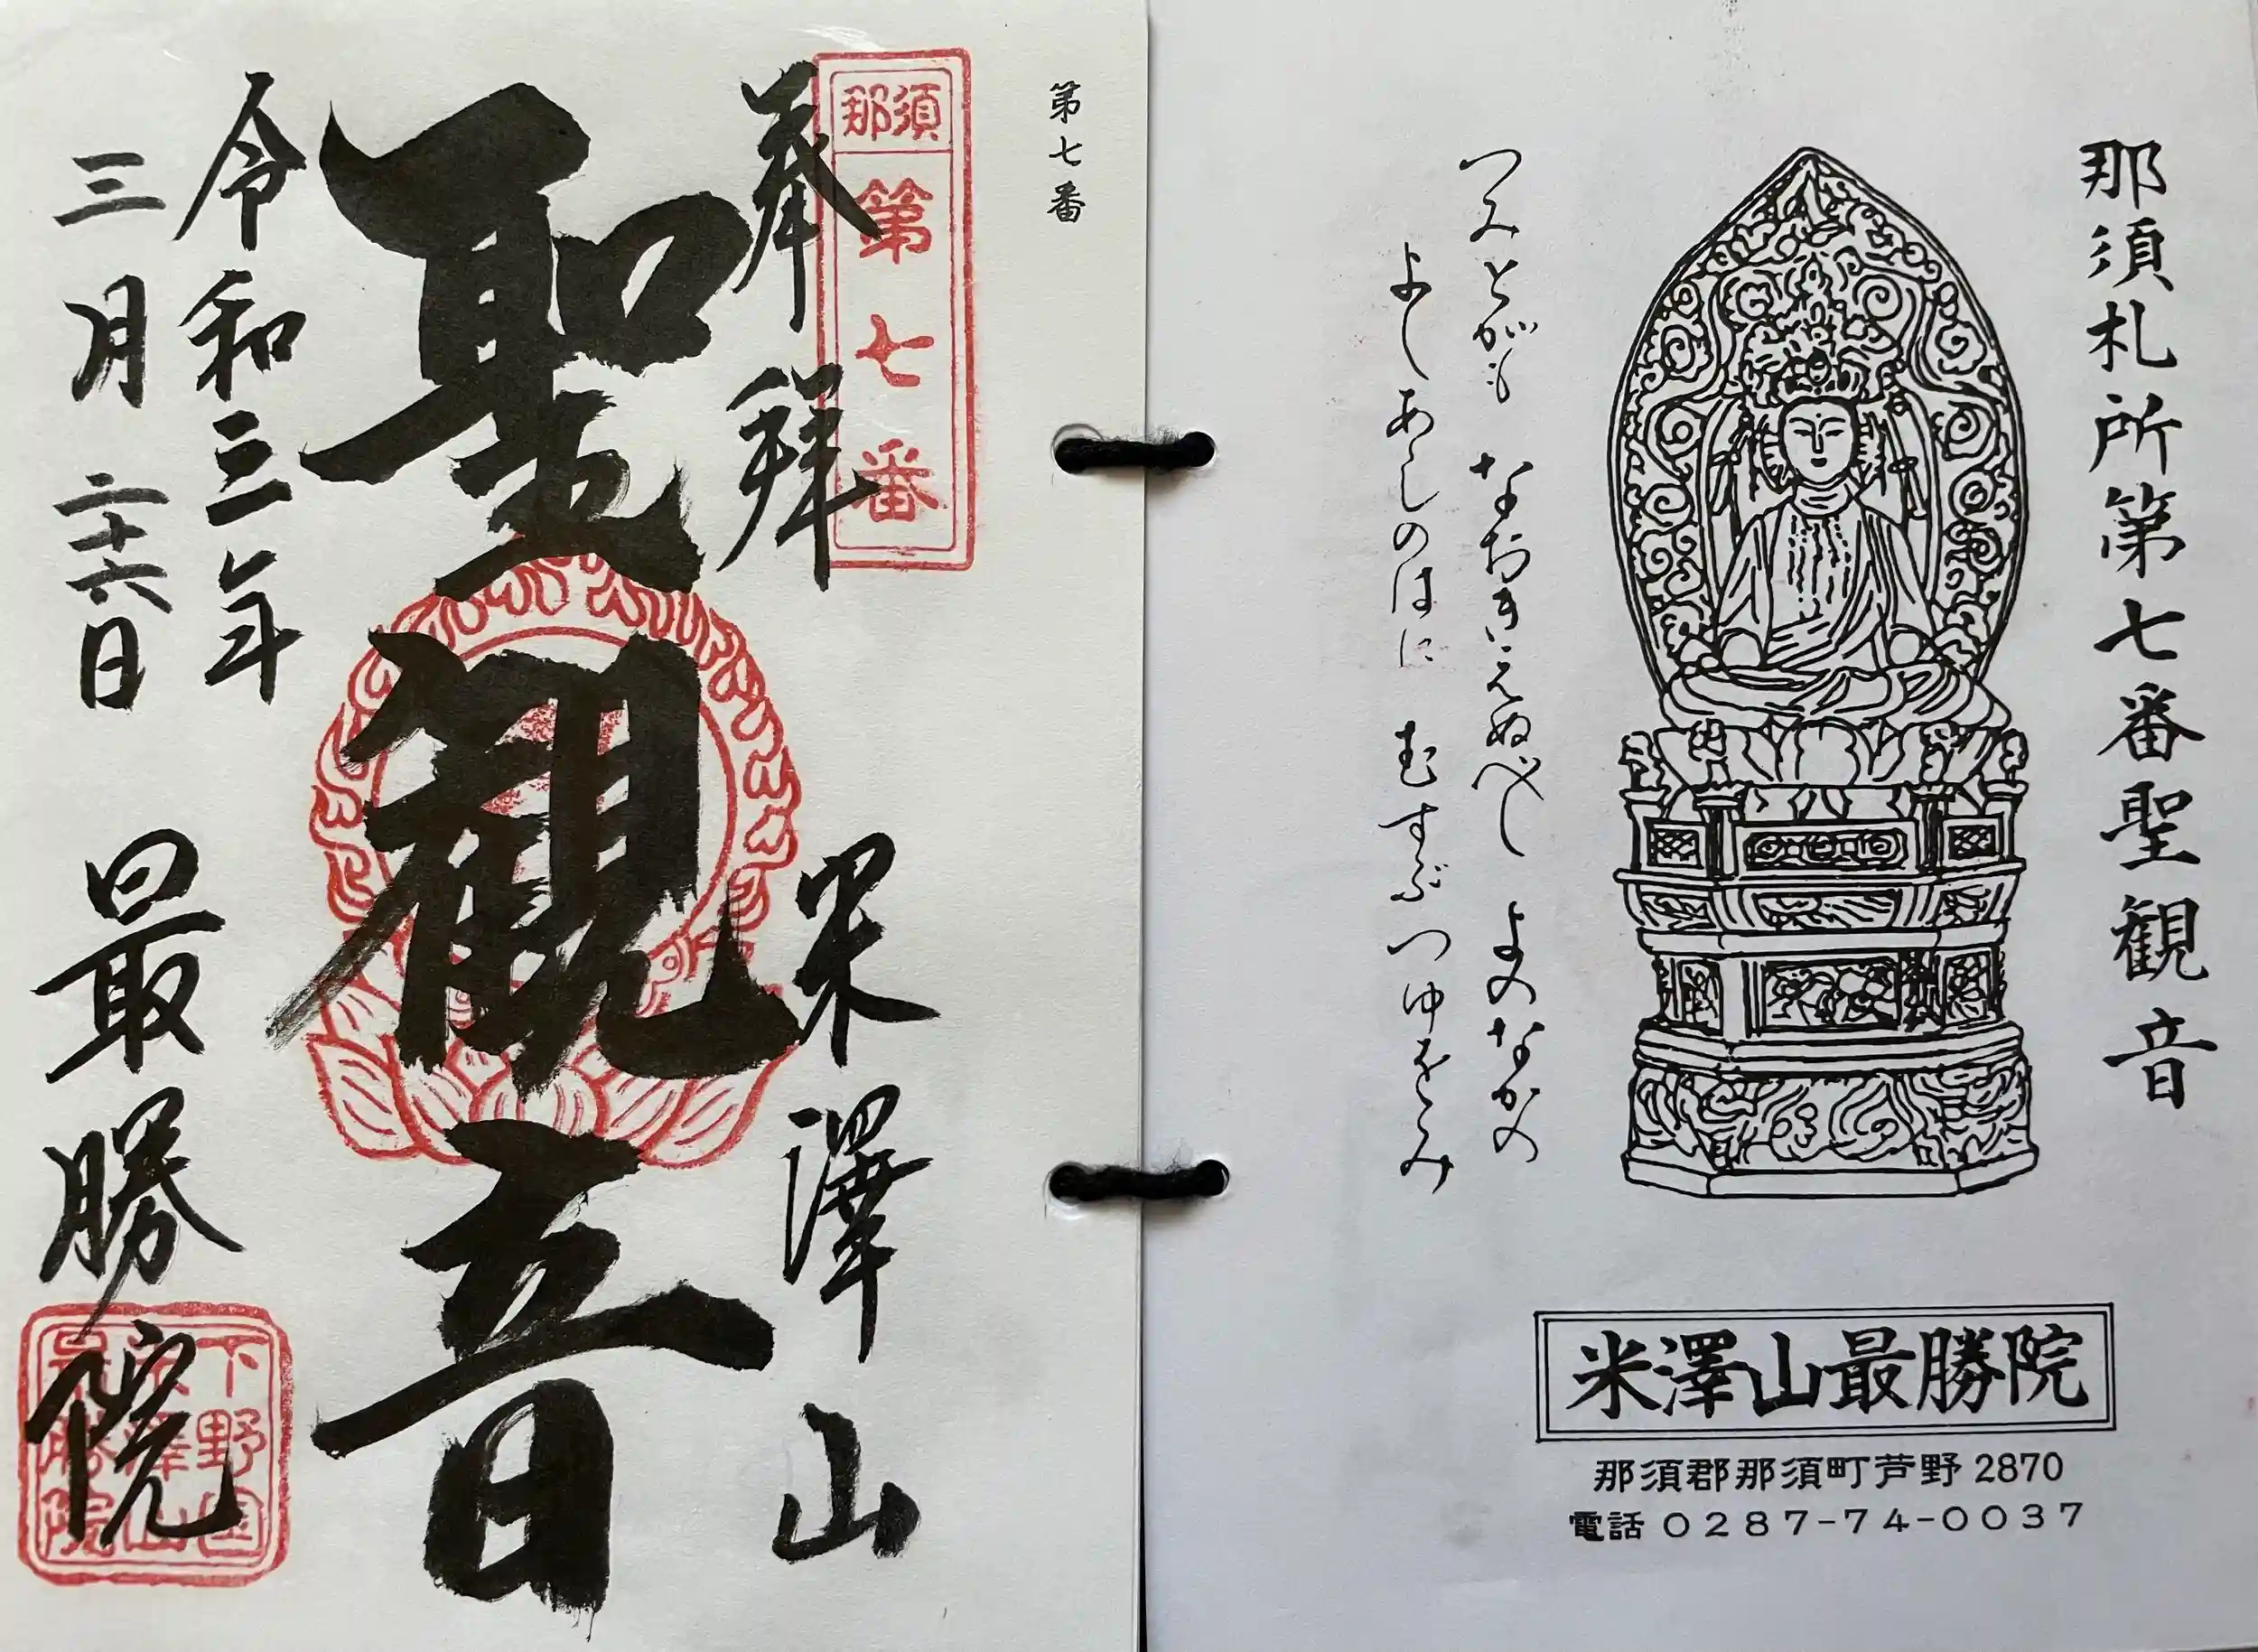 那須札所第七番聖観音
つみとがも なおきえぬべし よのなかの
よしあしのはに むすぶつゆをみ
米澤山最勝院
那須郡那須町芦野2870
電話 0287-74-0037
第七番
那須
第七番
奉拝
米澤山
聖観音
令和三年
三月二十六日
最勝院
下野国
米澤山
最勝院